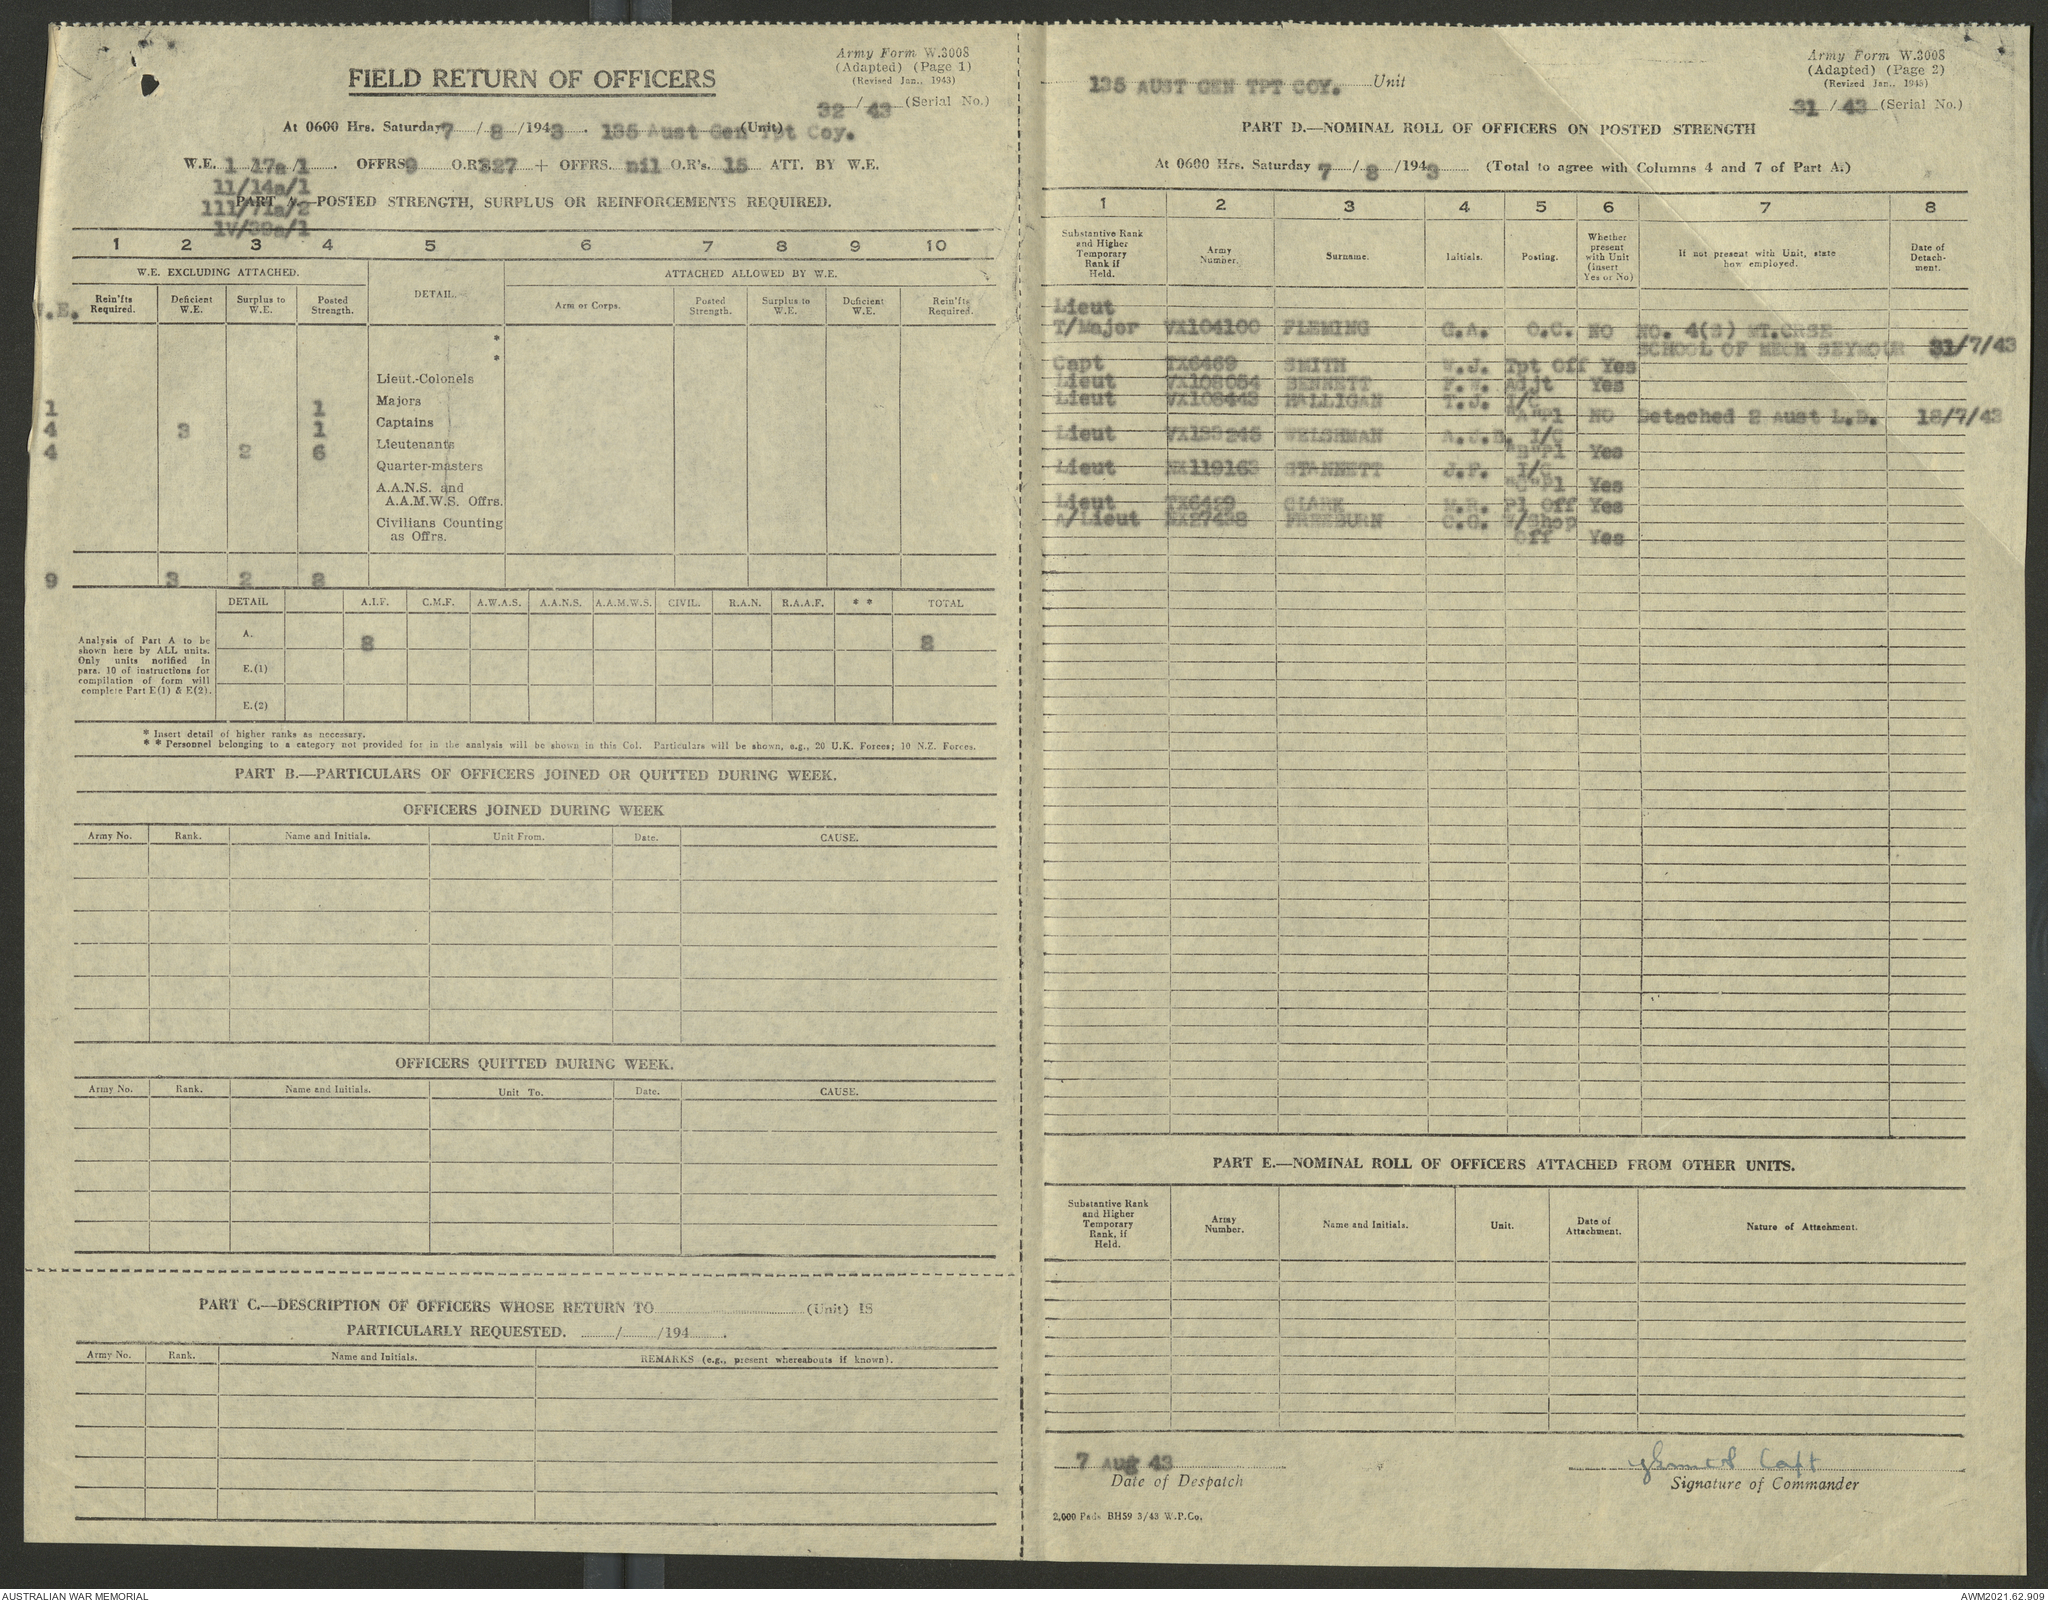 Army Form W.3008
(Adapted) (Page 1)
(Revised Jan., 1943)
FIELD RETURN OF OFFICERS
32/43 (Serial No.)
At 0600 Hrs. Saturday 7/8/1943. 135 Aust Gen Tpt Coy. (Unit)
W.E. 1 17a/1. OFFRS 9 O.R's 327 + OFFRS. nil O.R's. 15 ATT. BY W.E.
11/14a/1
111/71a/2
1V/39a/1
PART A.—POSTED STRENGTH, SURPLUS OR REINFORCEMENTS REQUIRED.
1 2 3 4 5 6 7 8 9 10
W.E. EXCLUDING ATTACHED. DETAIL. ATTACHED ALLOWED BY W.E.
W.E. Rein'fts Required. Deficient W.E. Surplus to W.E. Posted Strength. Arm or Corps. Posted Strength. Surplus to W.E. Deficient W.E. Rein'fts Required.
*
*
Lieut.-Colonels
1 1 Majors
4 3 1 Captains
4 2 6 Lieutenants
Quarter-masters
A.A.N.S. and
A.A.M.W.S. Offrs.
Civilians Counting
as Offrs.
9 3 2 8
DETAIL A.I.F. C.M.F. A.W.A.S. A.A.N.S. A.A.M.W.S. CIVIL. R.A.N. R.A.A.F. * * TOTAL
Analysis of Part A to be
shown here by ALL units.
Only units notified in
para. 10 of instructions for
compilation of form will
complete Part E(1) & E(2).
A. 8 8
E.(1)
E.(2)
* Insert detail of higher ranks as necessary.
* * Personnel belonging to a category not provided for in the analysis will be shown in this Col. Particulars will be shown, e.g., 20 U.K. Forces; 10 N.Z. Forces.
PART B.—PARTICULARS OF OFFICERS JOINED OR QUITTED DURING WEEK.
OFFICERS JOINED DURING WEEK
Army No. Rank. Name and Initials. Unit From. Date. CAUSE.
OFFICERS QUITTED DURING WEEK.
Army No. Rank. Name and Initials. Unit To. Date. CAUSE.
PART C.—DESCRIPTION OF OFFICERS WHOSE RETURN TO (Unit) IS
PARTICULARLY REQUESTED. / /194 .
Army No. Rank. Name and Initials. REMARKS (e.g., present whereabouts if known).
Army Form W.3008
(Adapted) (Page 2)
(Revised Jan., 1943)
135 AUST GEN TPT COY. Unit
31/43 (Serial No.)
PART D.—NOMINAL ROLL OF OFFICERS ON POSTED STRENGTH
At 0600 Hrs. Saturday 7/8/1943 (Total to agree with Columns 4 and 7 of Part A.)
1 2 3 4 5 6 7 8
Substantive Rank and Higher Temporary Rank if Held. Army Number. Surname. Initials. Posting. Whether present with Unit (Insert Yes or No) If not present with Unit, state how employed. Date of Detachment.
Lieut
T/Major VX104100 FLEMING G.A. O.C. NO NO. 4(S) MT.CRSE
SCHOOL OF MECH SEYMOUR 31/7/43
Capt TX6469 SMITH W.J. Tpt Off Yes
Lieut VX108054 BENNETT F.W. Adjt Yes
Lieut VX108443 HALLIGAN T.J. I/C
"A"Pl NO Detached 2 Aust L.D. 18/7/43
Lieut VX139245 WELSHMAN A.J.B. I/C
"B"Pl Yes
Lieut NX119163 STANNETT J.F. I/C
"C"Pl Yes
Lieut TX6429 CLARK M.R. Pl Off Yes
A/Lieut NX27438 FREEBURN C.G. W/Shop
Off Yes
PART E.—NOMINAL ROLL OF OFFICERS ATTACHED FROM OTHER UNITS.
Substantive Rank and Higher Temporary Rank, if Held. Army Number. Name and Initials. Unit. Date of Attachment. Nature of Attachment.
7 Aug 43
Date of Despatch
Capt
Signature of Commander
2,000 Pads BH59 3/43 W.P.Co.
AUSTRALIAN WAR MEMORIAL
AWM2021.62.909